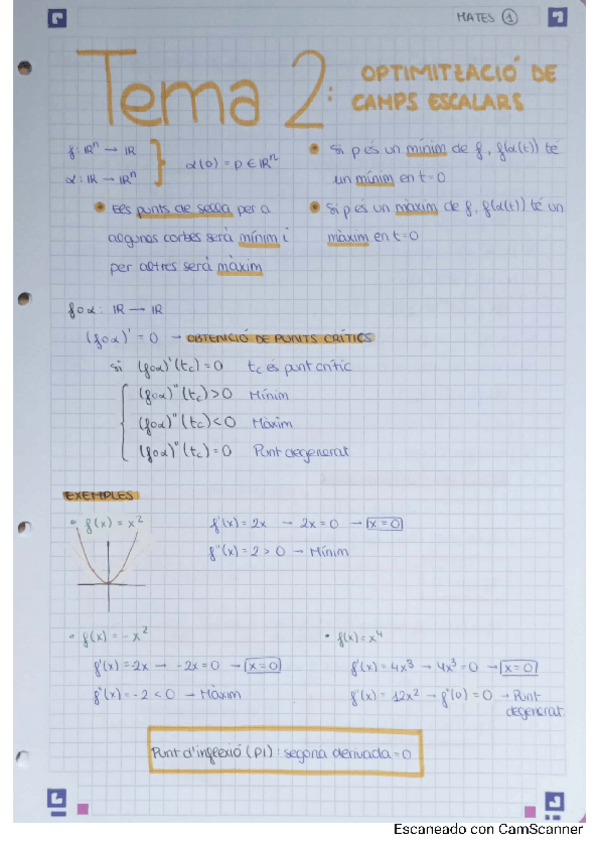 MATES ①
Tema 2: OPTIMITZACIÓ DE
CAMPS ESCALARS
f: ℝⁿ → ℝ
α: ℝ → ℝⁿ
α(0) = p ∈ ℝⁿ
• Si p és un mínim de f, f(α(t)) té
un mínim en t=0
• Els punts de sella per a
algunes corbes serà mínim i
per altres serà màxim
• Si p és un màxim de f, f(α(t)) té un
màxim en t=0
f∘α: ℝ → ℝ
(f∘α)' = 0 → OBTENCIÓ DE PUNTS CRÍTICS
si (f∘α)'(tc) = 0 tc és punt crític
(f∘α)''(tc) > 0 Mínim
(f∘α)''(tc) < 0 Màxim
(f∘α)''(tc) = 0 Punt degenerat
EXEMPLES
• f(x) = x²
f'(x) = 2x → 2x = 0 → x = 0
f''(x) = 2 > 0 → Mínim
• f(x) = -x²
f'(x) = -2x → -2x = 0 → x = 0
f''(x) = -2 < 0 → Màxim
• f(x) = x⁴
f'(x) = 4x³ → 4x³ = 0 → x = 0
f''(x) = 12x² → f''(0) = 0 → Punt
degenerat
Punt d'inflexió (PI): segona derivada = 0
Escaneado con CamScanner